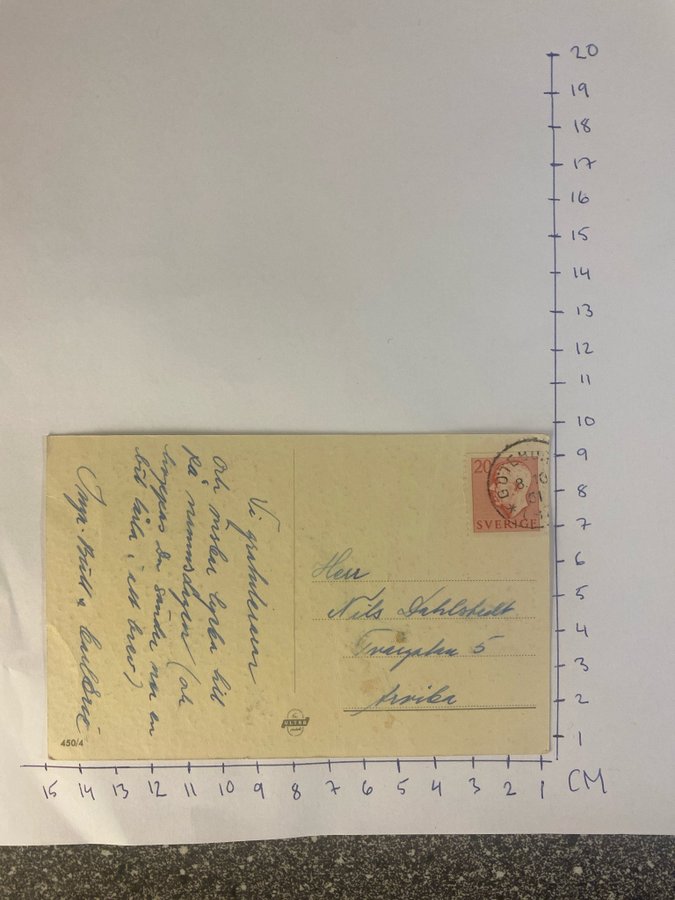 Vi gratulerar
och önskar lycka till
på namnsdagen (och
hoppas du sänder mer en
i ett brev)
Herr
Nils Dahlstedt
5
Arvika
20
SVERIGE
8 10
61
ULTRA
450/4
20
19
18
17
16
15
14
13
12
11
10
9
8
7
6
5
4
3
2
1
15 14 13 12 11 10 9 8 7 6 5 4 3 2 1 CM